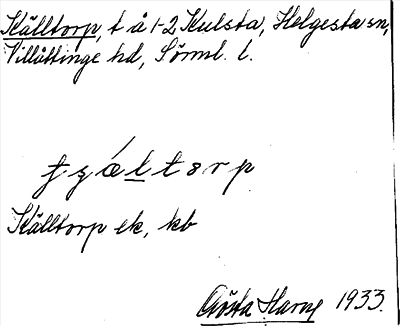 Källtorp, t å 1-2 Kulsta, Helgesta sn,
Villåttinge hd, Sörml. l.
tʒǽltorp
Källtorp ek, kb
Gösta Harne 1933.